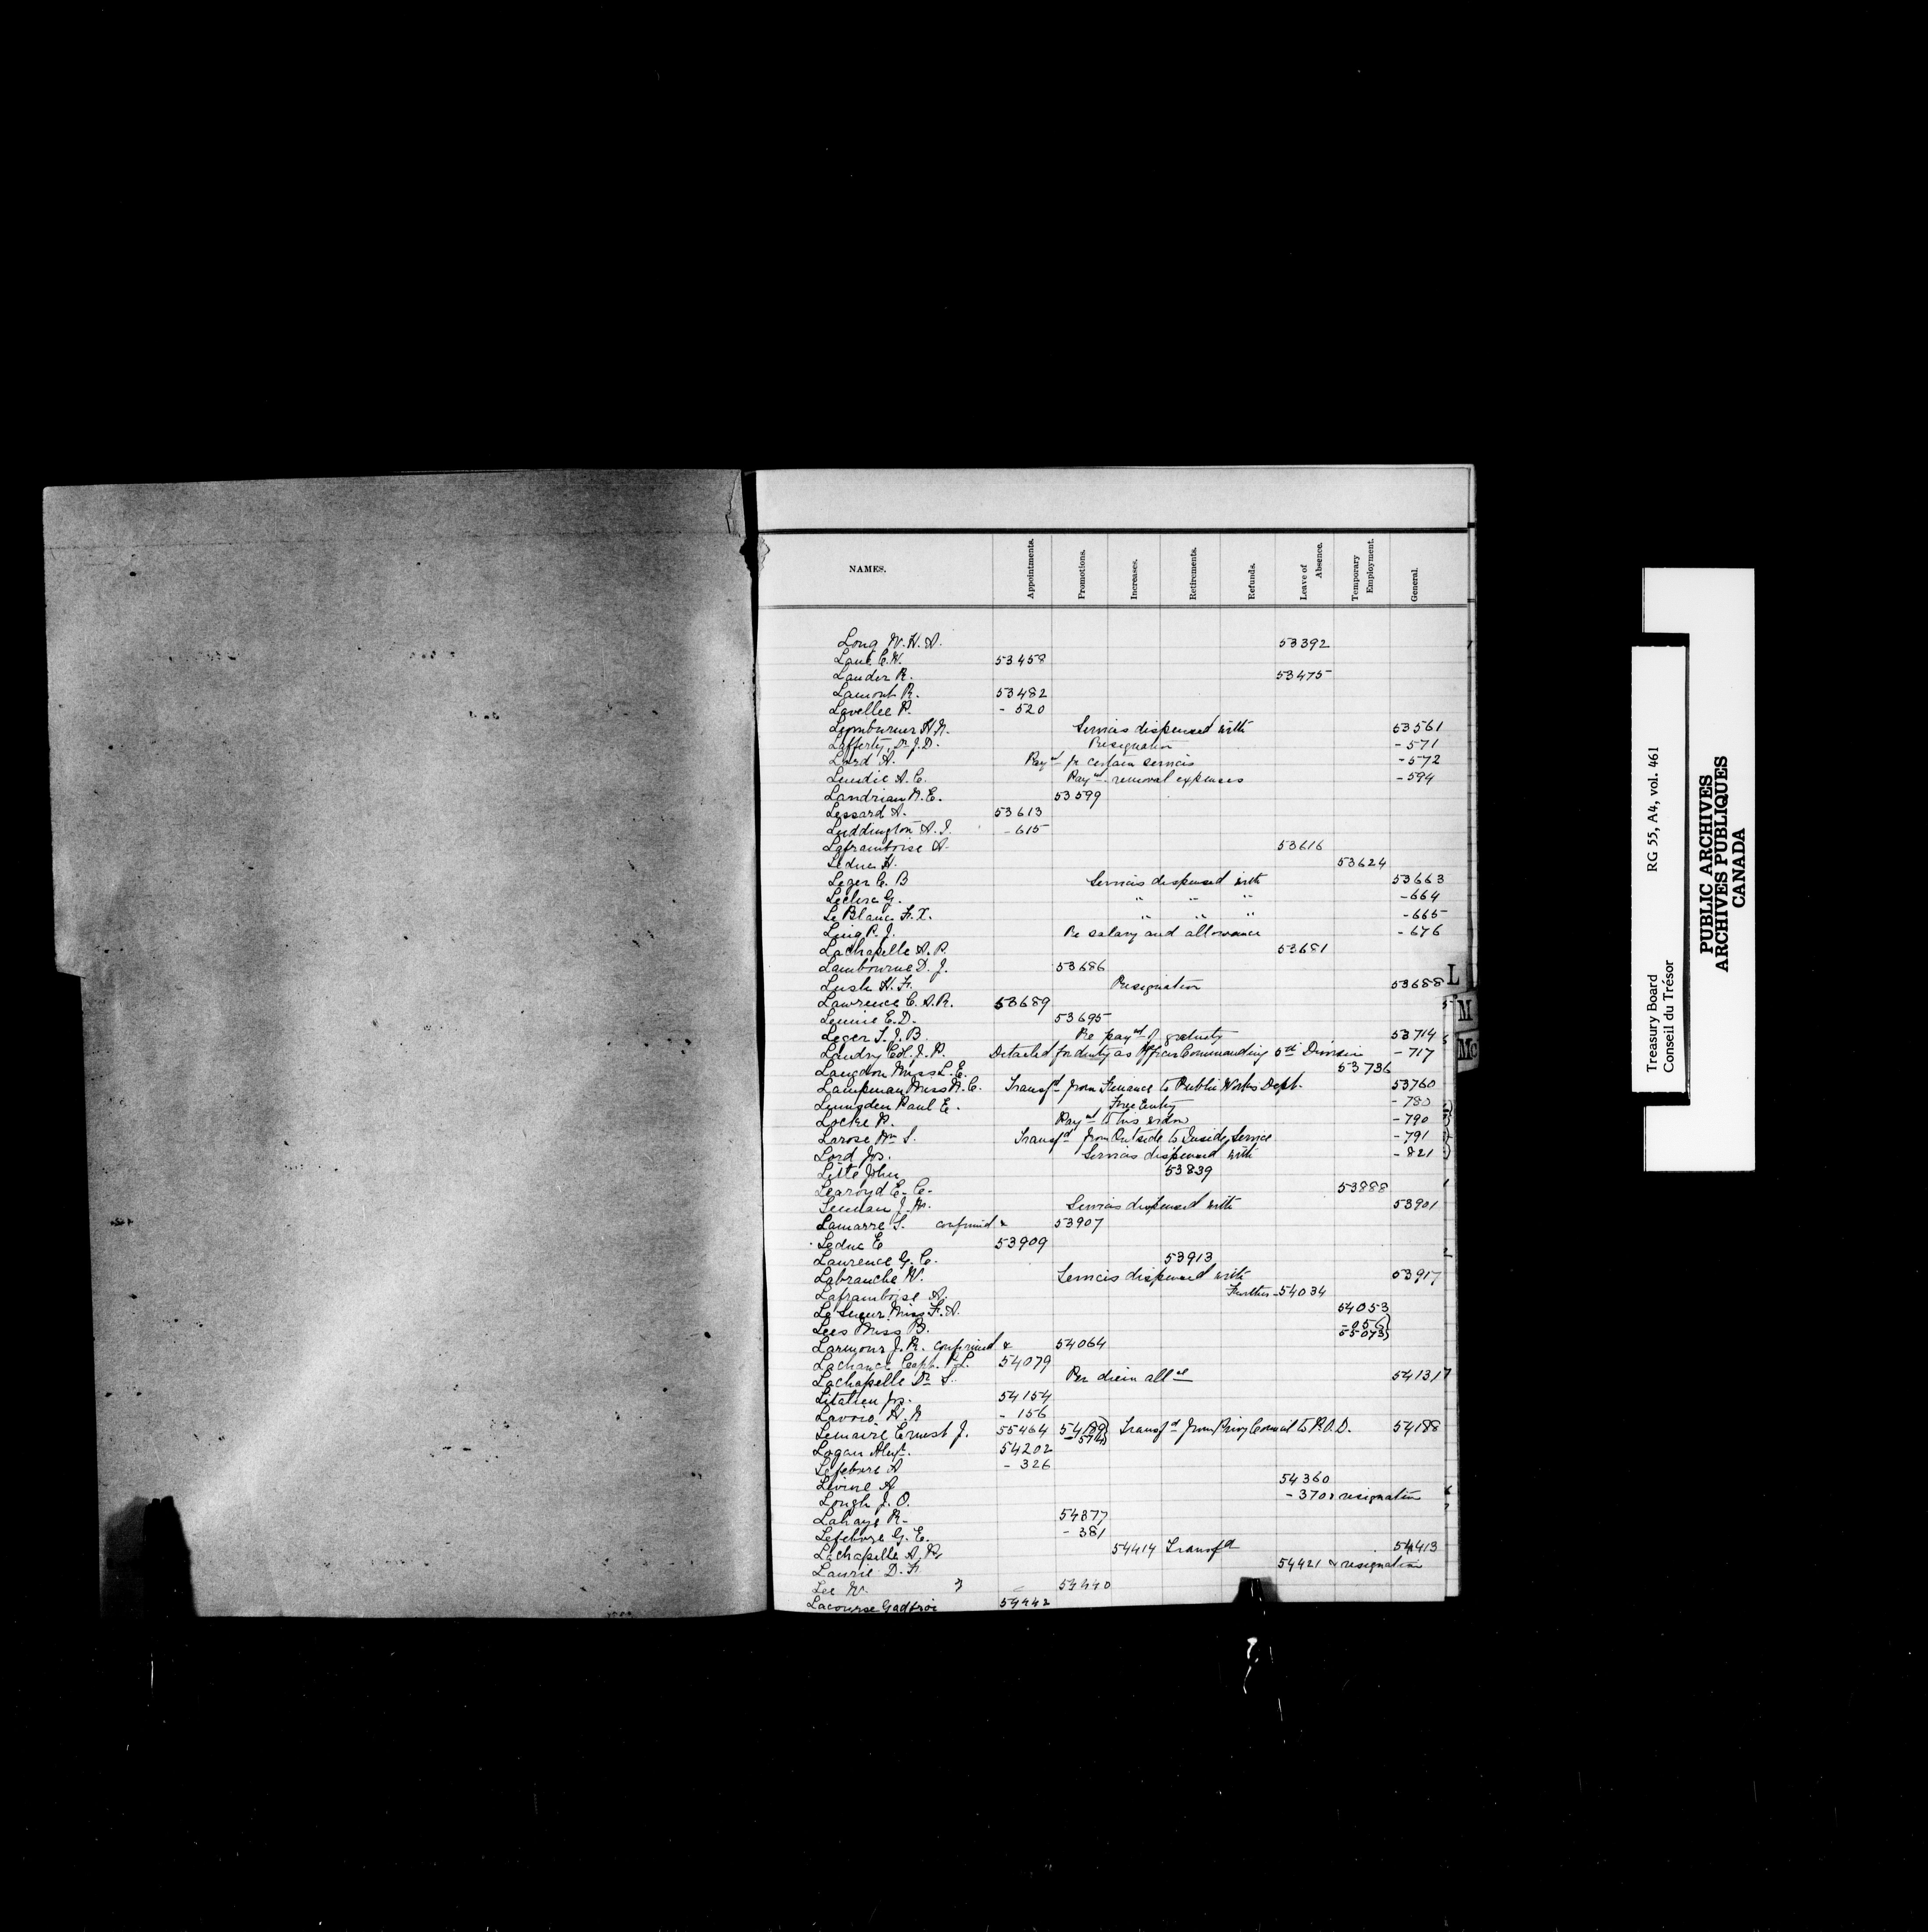 NAMES. Appointments. Promotions. Increases. Retirements. Refunds. Leave of Absence. Temporary Employment. General.
Long W. H. A. 53392
Lane C. W. 53458
Lauder R. 53475
Lamont R. 53482
Lavellee P. - 520
Lamburner H. N. Services dispensed with 53561
Lafferty, Dr J. D. Resignation - 571
Lord A. Paynt for certain services - 572
A. C. Paynt removal expenses - 594
Landriau N. E. 53599
Lessard A. 53613
Luddington A. J. - 615
Laframboise A. 53616
Leduc H. 53624
Leger C. B Services dispensed with 53663
Leclerc G. " " " - 664
Le Blanc F. X. " " " - 665
Ling P. J. Re salary and allowance - 676
Lachapelle A. P. 53681
Lambourne D. J. 53686
Lush H. F. Resignation 53688
Lawrence C. A. R. 53689
Lennie E. D. 53695
Leger T. J. B. Re paynt of gratuity 53714
Landry Col. J. P. Detailed for duty as Officer Commanding 5th Division - 717
Langdon Miss L. E. 53736
Lampman Miss N. C. Transfd from Finance to Public Works Dept. 53760
Lumgden Paul E. Free Entry - 780
Locke P. Paynt to his widow - 790
Larose Wm S. Transfd from Outside to Inside Service - 791
Lord Jos. Services dispensed with - 821
Litte John 53839
Learoyd E. C. 53888
Lennan J. M. Services dispensed with 53901
Lamarre S. confirmed & 53907
Leduc E 53909
Laurence G. C. 53913
Labranche W. Services dispensed with 53917
Laframboise A. Further - 54034
Le Sueur Miss F. A. 54053
Lees Miss B. - 056
55073
Larmour J. R. confirmed & 54064
Lachance Capt. P. L. 54079
Lachapelle Dr S. Per diem allce 54131
Litalien Jos. 54154
Lavoie H. N - 156
Lemaire Ernest J. 55464 54189 Transfd from Privy Council to P.O.D. 54188
- 574
Logan Alexr. 54202
Lefebvre A - 326
Levine A 54360
Lough J. O. - 370 & resignation
Lahaye R. 54377
Lefebvre G. E. - 381
Lachapelle A. P. 54414 Transfd 54413
Laurie D. F. 54421 & resignation
Lee W. 54440
Lacourse Gadfroi 54442
L
M
Mc
Treasury Board RG 55, A4, vol. 461
Conseil du Trésor
PUBLIC ARCHIVES
ARCHIVES PUBLIQUES
CANADA